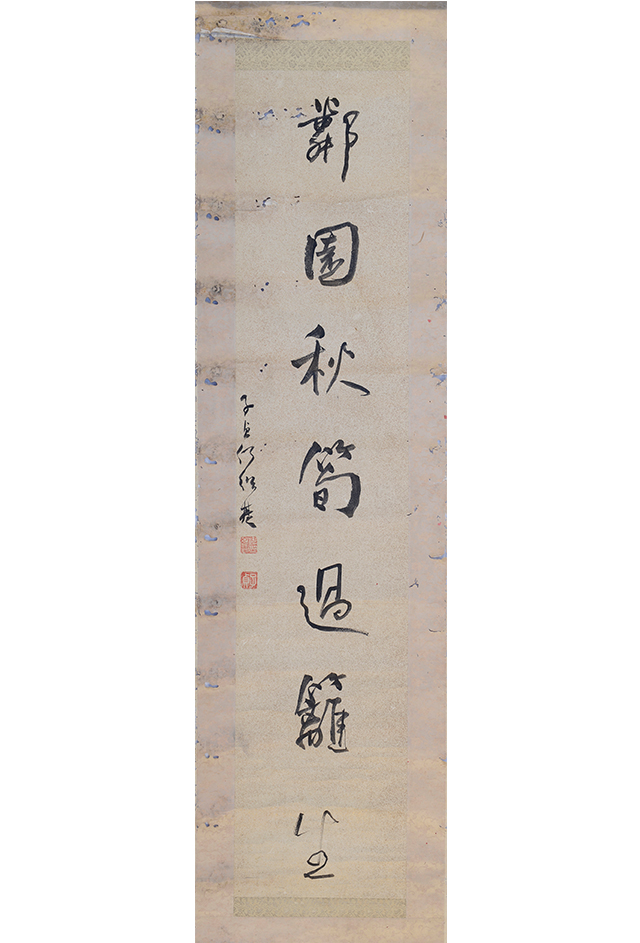 鄰園秋筍過籬生
子貞何紹基